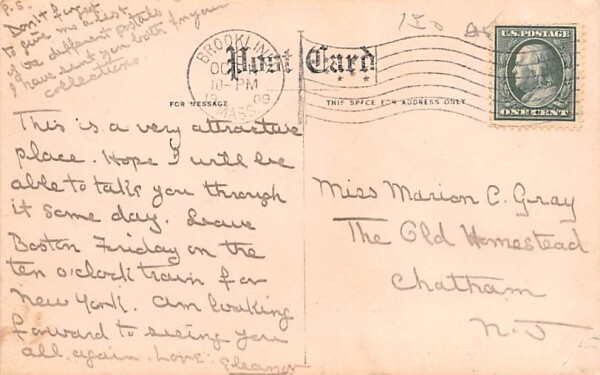 P.S.
Don't forget
to give me a list
of the different postals
I have sent you both for your
collections.
Post Card
BROOKLINE
OCT
10-PM
09
MASS.
U.S. POSTAGE
ONE CENT
FOR MESSAGE
THIS SPACE FOR ADDRESS ONLY
This is a very attractive
place. Hope I will be
able to take you through
it some day. Leave
Boston Friday on the
ten o'clock train for
New York. Am looking
forward to seeing you
all again. Love. Eleanor
Miss Marion C. Gray
The Old Homestead
Chatham
N. J.